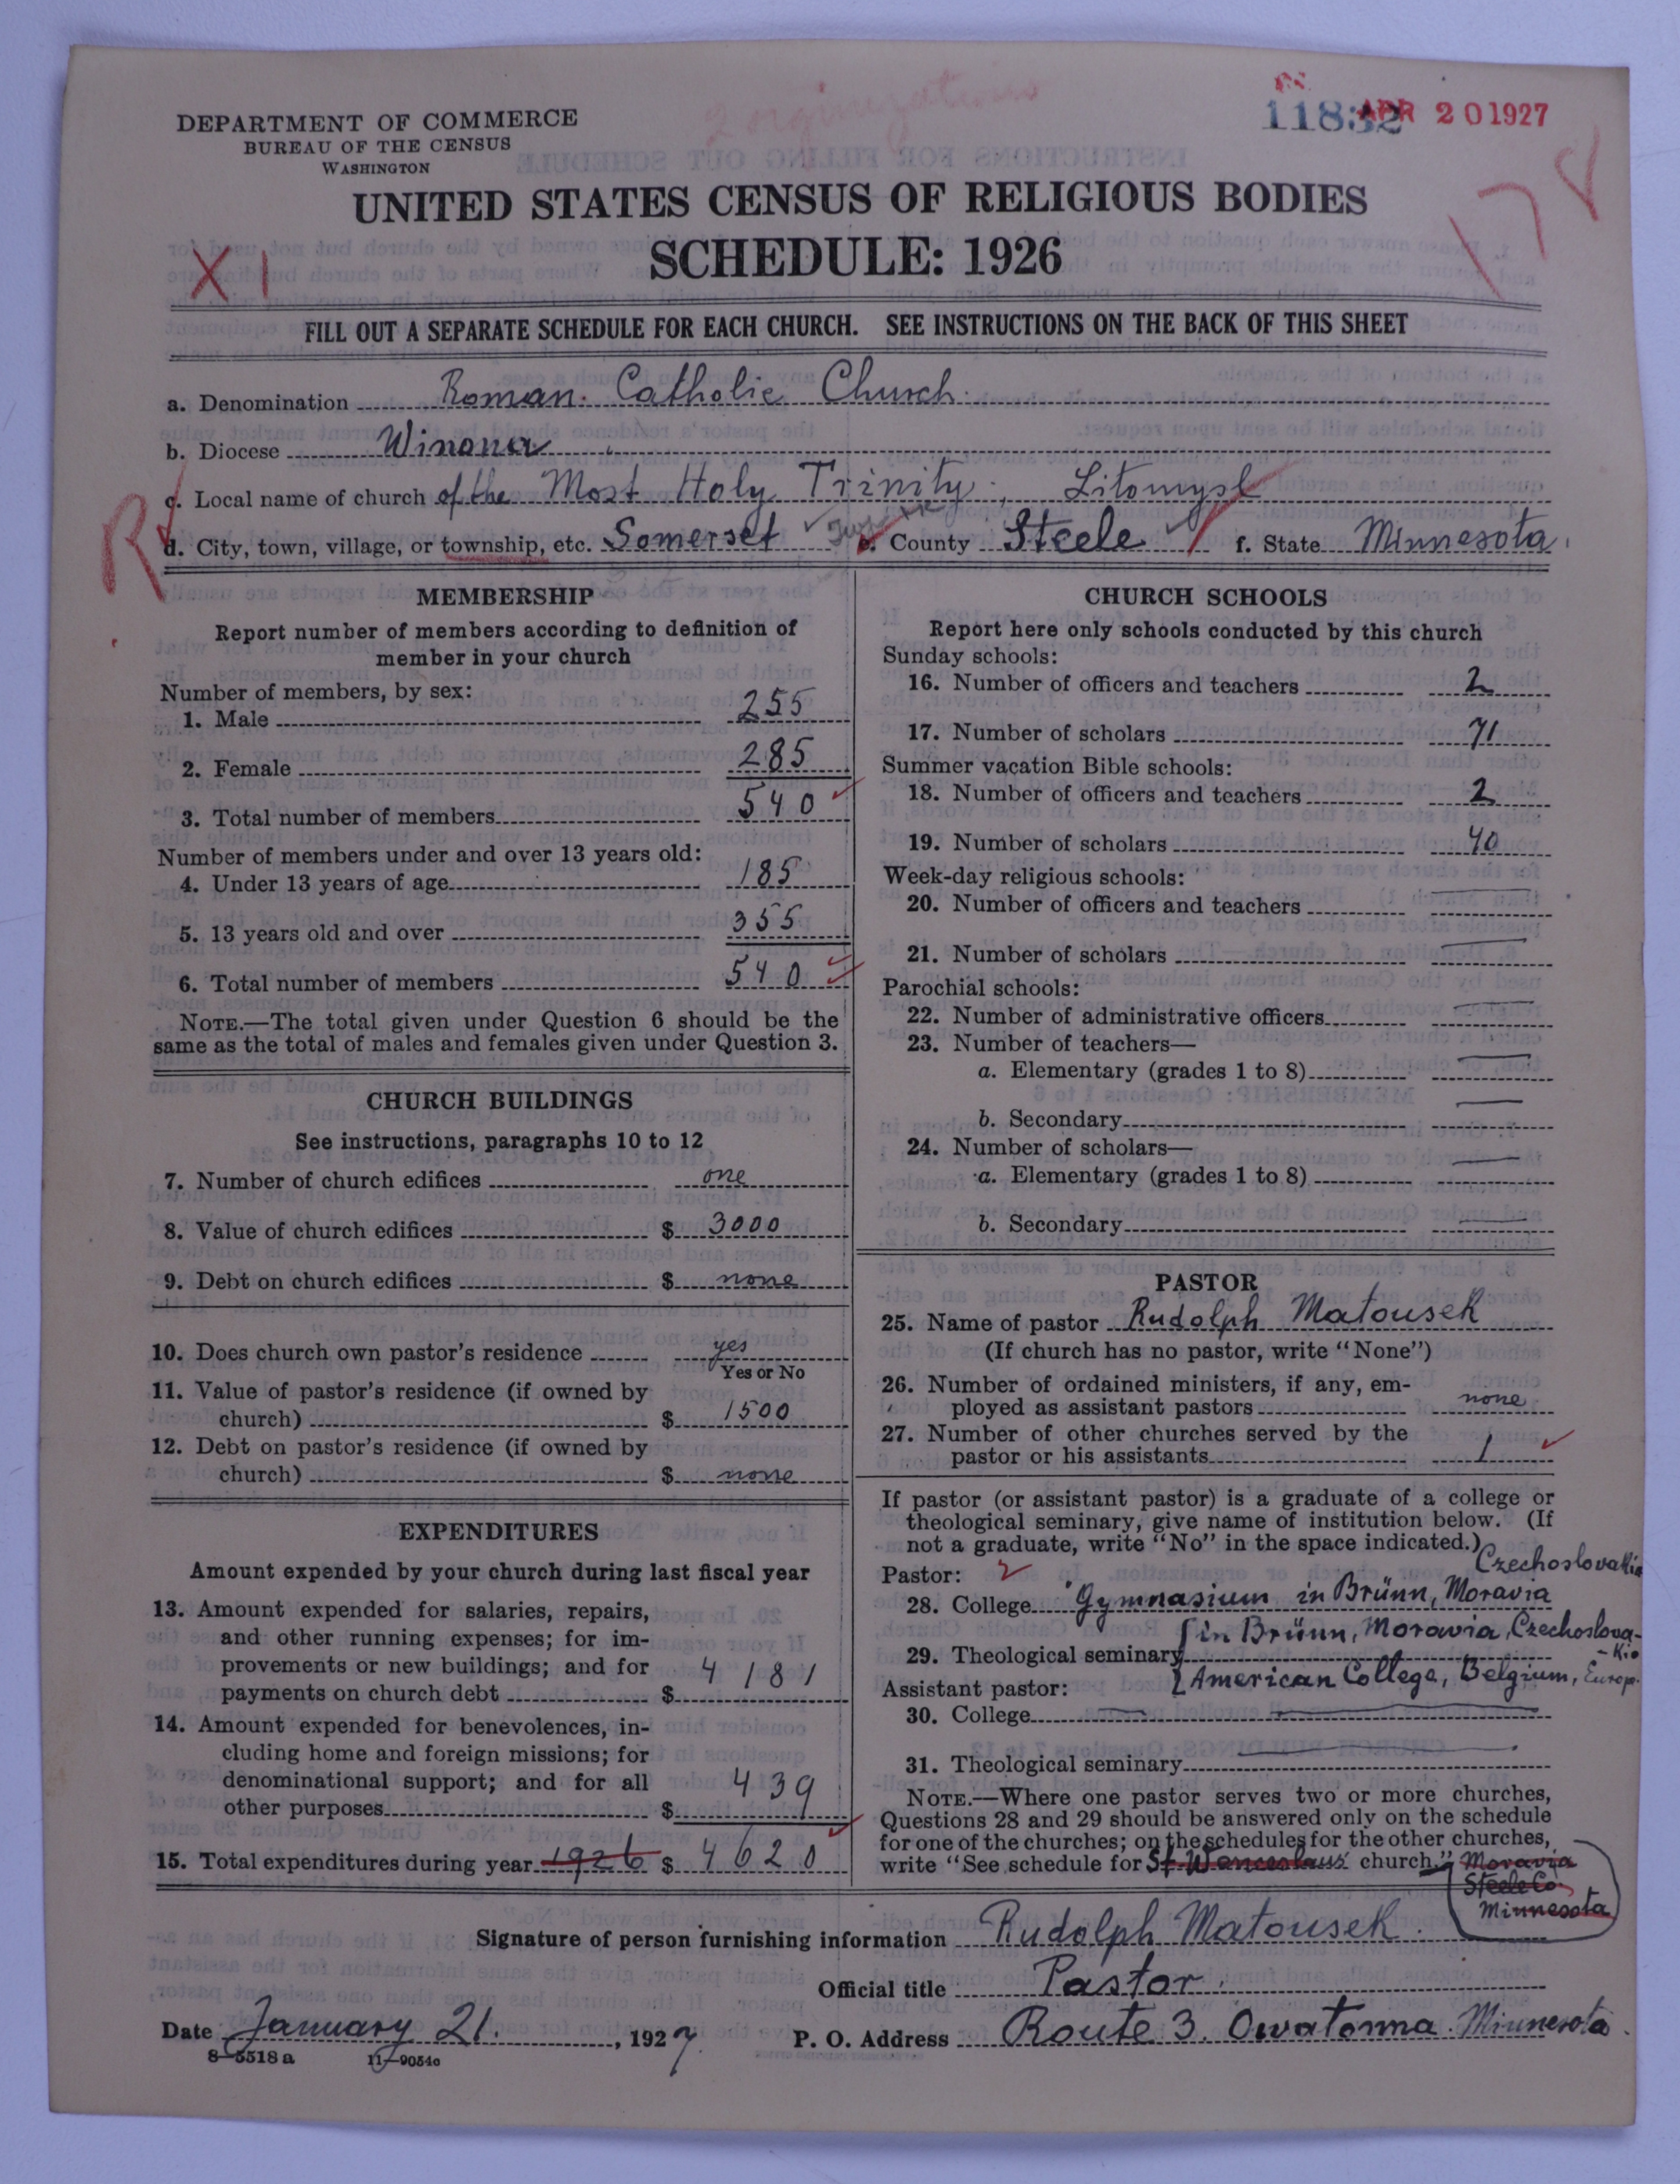 2 organizations
11832
APR 20 1927
DEPARTMENT OF COMMERCE
BUREAU OF THE CENSUS
WASHINGTON
178
UNITED STATES CENSUS OF RELIGIOUS BODIES
SCHEDULE: 1926
X1
FILL OUT A SEPARATE SCHEDULE FOR EACH CHURCH. SEE INSTRUCTIONS ON THE BACK OF THIS SHEET
a. Denomination Roman Catholic Church
b. Diocese Winona
c. Local name of church of the Most Holy Trinity, Litomysl
R
d. City, town, village, or township, etc. Somerset e. County Steele f. State Minnesota
MEMBERSHIP
Report number of members according to definition of
member in your church
Number of members, by sex:
1. Male 255
2. Female 285
3. Total number of members 540
Number of members under and over 13 years old:
4. Under 13 years of age 185
5. 13 years old and over 355
6. Total number of members 540
NOTE.—The total given under Question 6 should be the
same as the total of males and females given under Question 3.
CHURCH BUILDINGS
See instructions, paragraphs 10 to 12
7. Number of church edifices one
8. Value of church edifices $ 3000
9. Debt on church edifices $ none
10. Does church own pastor's residence yes
Yes or No
11. Value of pastor's residence (if owned by
church) $ 1500
12. Debt on pastor's residence (if owned by
church) $ none
EXPENDITURES
Amount expended by your church during last fiscal year
13. Amount expended for salaries, repairs,
and other running expenses; for im-
provements or new buildings; and for
payments on church debt $ 4181
14. Amount expended for benevolences, in-
cluding home and foreign missions; for
denominational support; and for all
other purposes $ 439
15. Total expenditures during year 1926 $ 4620
CHURCH SCHOOLS
Report here only schools conducted by this church
Sunday schools:
16. Number of officers and teachers 2
17. Number of scholars 71
Summer vacation Bible schools:
18. Number of officers and teachers 2
19. Number of scholars 40
Week-day religious schools:
20. Number of officers and teachers —
21. Number of scholars —
Parochial schools:
22. Number of administrative officers —
23. Number of teachers—
a. Elementary (grades 1 to 8) —
b. Secondary —
24. Number of scholars—
a. Elementary (grades 1 to 8) —
b. Secondary —
PASTOR
25. Name of pastor Rudolph Matousek
(If church has no pastor, write "None")
26. Number of ordained ministers, if any, em-
ployed as assistant pastors none
27. Number of other churches served by the
pastor or his assistants 1
If pastor (or assistant pastor) is a graduate of a college or
theological seminary, give name of institution below. (If
not a graduate, write "No" in the space indicated.)
Czechoslovakia
Pastor: 2
28. College Gymnasium in Brünn, Moravia
in Brünn, Moravia, Czechoslova-
kia
29. Theological seminary
American College, Belgium, Europ.
Assistant pastor:
30. College —
31. Theological seminary —
NOTE.—Where one pastor serves two or more churches,
Questions 28 and 29 should be answered only on the schedule
for one of the churches; on the schedules for the other churches,
write "See schedule for St. Wenceslaus' church." Moravia
Steele Co.
Minnesota
Signature of person furnishing information Rudolph Matousek
Official title Pastor
Date January 21. , 1927 P. O. Address Route 3. Owatonna. Minnesota.
8—5518 a 11—9054c